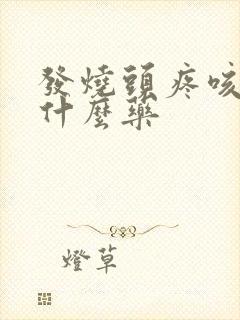 發燒頭疼咳
什麼藥
燈草